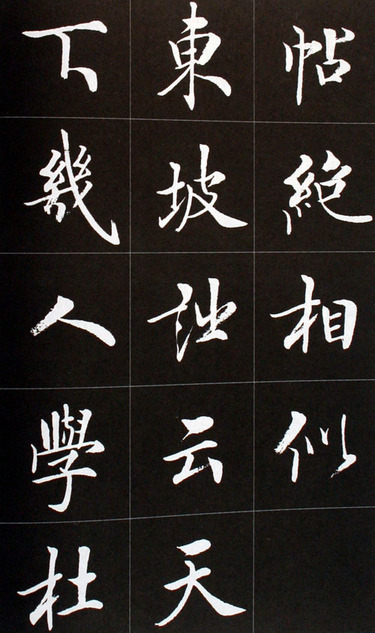 帖絶相似
東坡詩云天
下幾人學杜